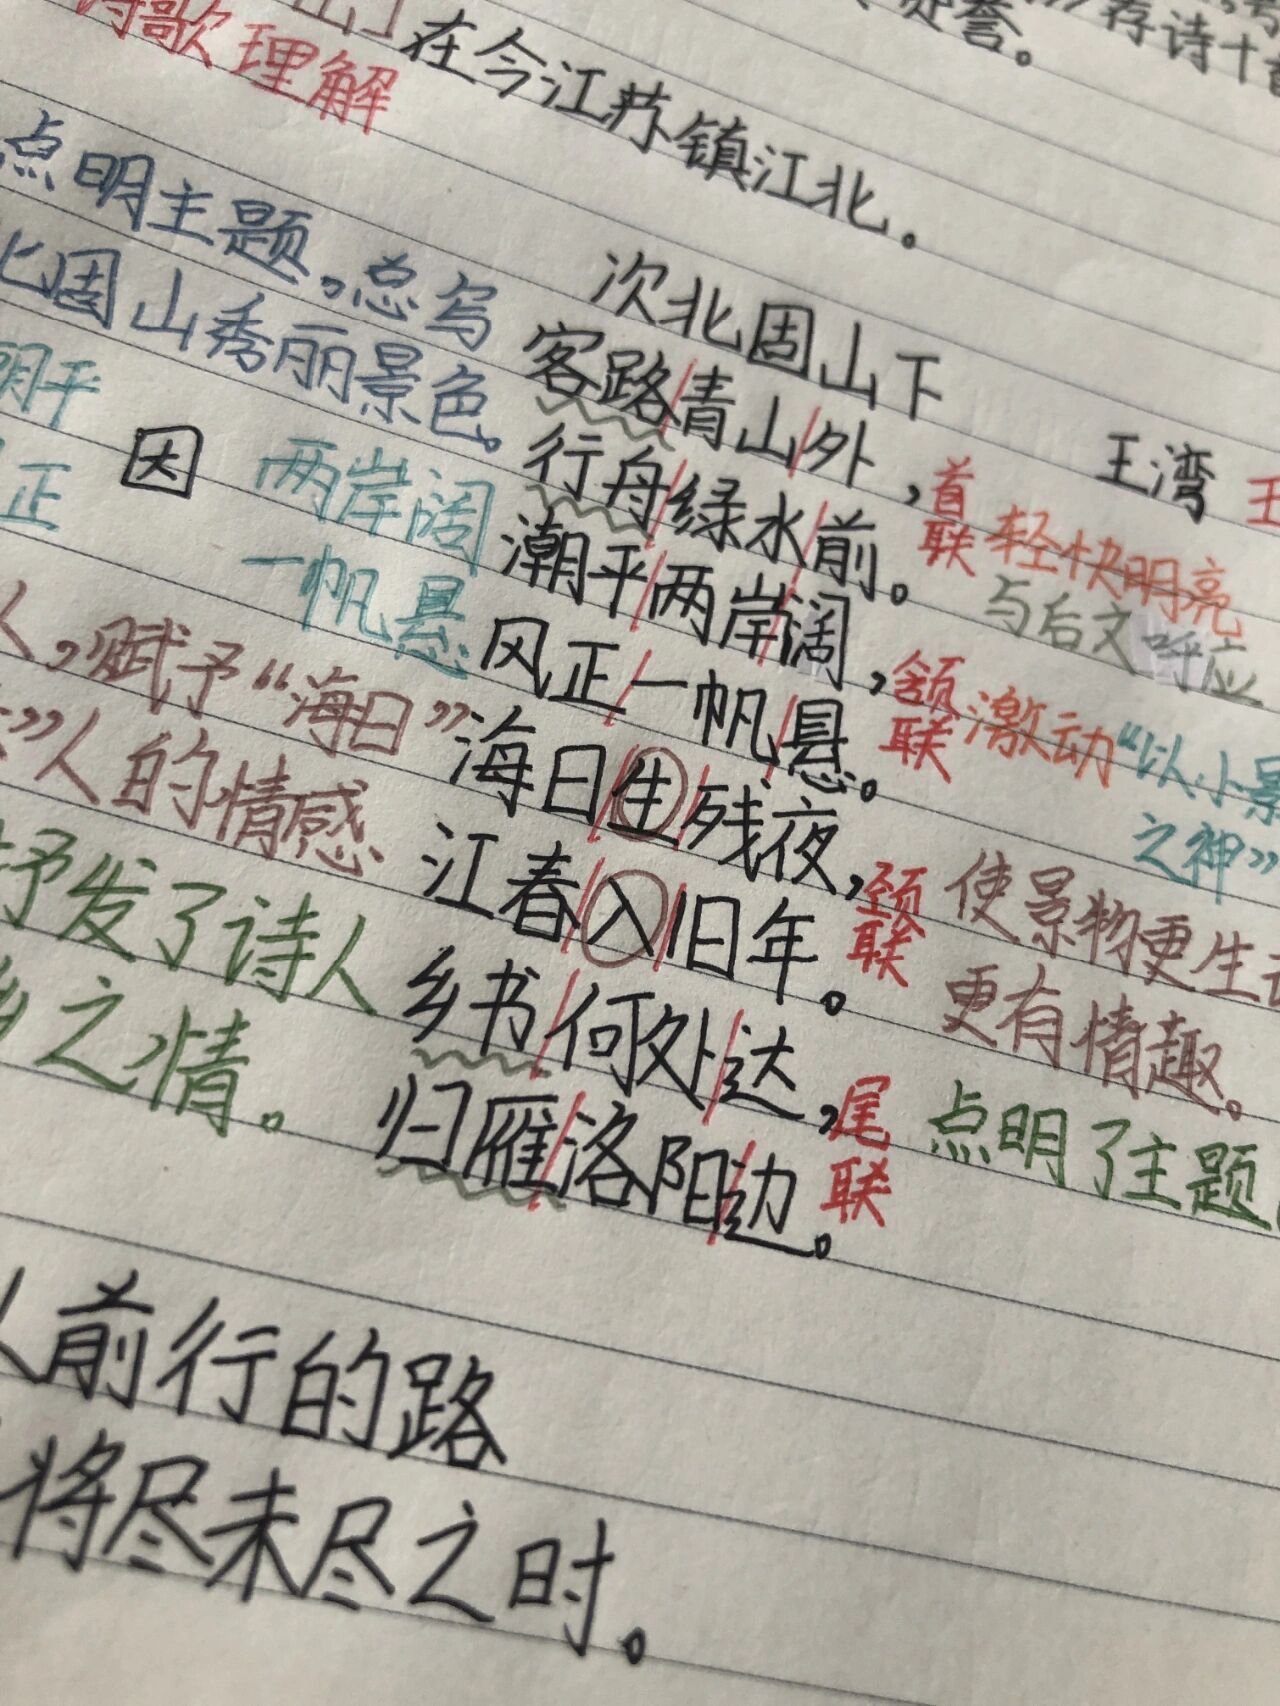 荐诗十
誉。
在今江苏镇江北。
诗歌理解
点明主题,总写
北固山秀丽景色。
次北固山下
王湾
客路/青山/外,
行舟/绿水/前。
首联 轻快明亮
与后文呼应
潮平/两岸/阔,
风正/一帆/悬。
颔联 激动“以小景
之神”
潮平 因 两岸阔
正 一帆悬
海日/生/残夜,
江春/入/旧年。
颈联 使景物更生动
更有情趣。
人,赋予“海日”
”人的情感
乡书/何处/达,
归雁/洛阳/边。
尾联 点明了主题
抒发了诗人
乡之情。
人前行的路
将尽未尽之时。